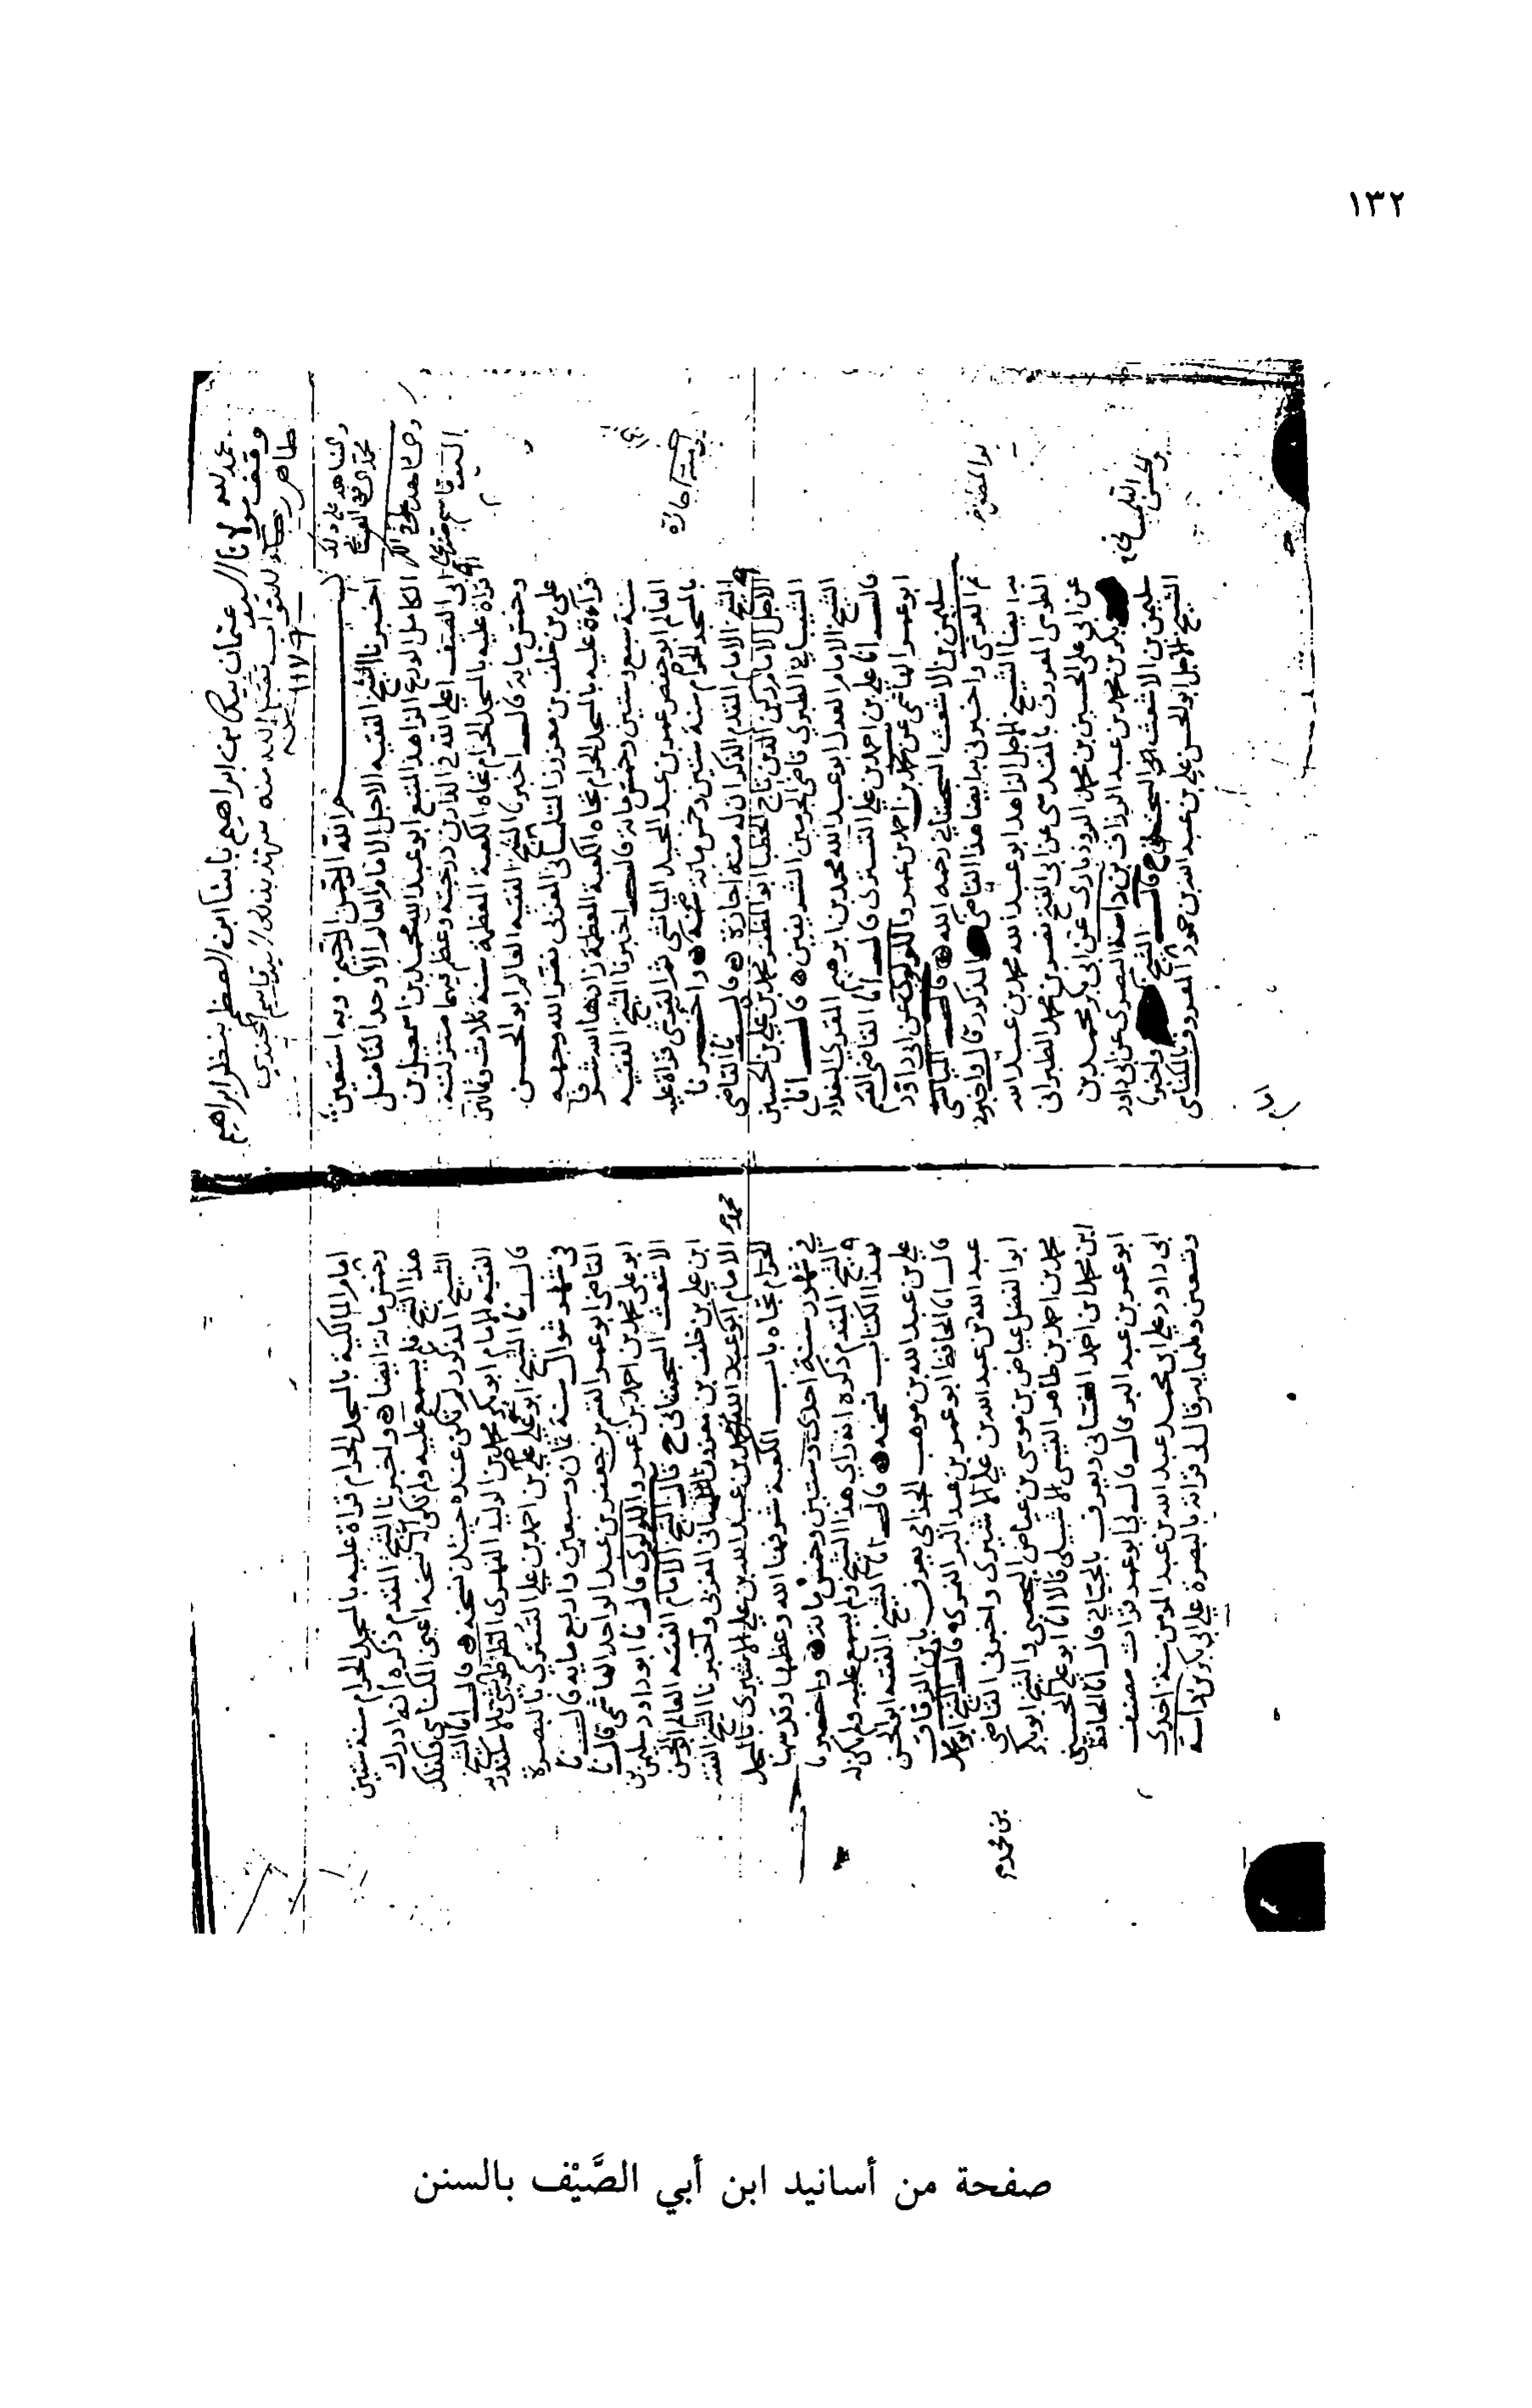 ١٣٢
وقف مولانا السيد عثمان بيك بن ابراهيم باشا ابن
بسم الله الرحمن الرحيم وبه استعين
اخبرنا الشيخ الفقيه الاجل الامام العالم الاوحد الفاضل
الكامل الورع الزاهد المتبع ابو عبد الله محمد بن اسمعيل بن
ابي الصيف اعلى الله في الدارين درجته وعظم فيهما منزلته
قراة عليه بالمسجد الحرام تجاه الكعبة المعظمة سنة ثلاث وثمانين
وخمس مايه قال اخبرنا الشيخ الفقيه العالم ابو الحسن
علي بن خلف بن معزوز التلمساني المغربي نضر الله وجهه
قراءة عليه بالمسجد الحرام تجاه الكعبة المعظمة زادها الله شرفا
سنة سبع وستين وخمس مائة قال اخبرنا الشيخ الفقيه
العالم ابو حفص عمر بن عبد المجيد الميانشي ثم القرشي قراة عليه
بالمسجد الحرام سنة ستين وخمس مائة واخبرنا
الشيخ الامام المقدم الذكر ان له منه اجازة قال نا القاضي
الاجل الامام ركن الدين تاج الخطبا ابو المظفر محمد بن علي بن الحسين
الشيباني الطبري قاضي الحرمين الشريفين قال انا
الشيخ الامام العدل ابو عبد الله محمد بن ابرهيم المقري البغداد
قال انا علي بن احمد بن علي التستري قال انا القاضي القسم
ابو عمر الهاشمي عن محمد بن احمد بن عمرو اللولوي عن ابي داود
سليمن بن الاشعث السجستاني رحمه الله قال الميانشي
ثم القرشي واخبرني بها ايضا هذا القاضي المذكور قال واخبرني
به ايضا الشيخ الاجل الزاهد ابو عبد الله محمد بن عبد الله
الطوسي المعروف بالمقدسي عن ابي الفتح نصر بن محمد الطبراني
عن ابي علي الحسين بن محمد الروذباري عن ابي بكر محمد بن
بكر بن محمد بن عبد الرزاق بن داسة البصري عن ابي داود
سليمن بن الاشعث السجستاني قال الشيخ واخبرنا
الشيخ الاجل ابو الحسن علي بن عبد الله بن حمود المعروف بالمكناسي
امام المالكية بالمسجد الحرام قراة عليه بالمسجد الحرام سنة ستين
وخمس مائة ايضا واخبرنا الشيخ المقدم ذكره انه ادرك
هذا الشيخ فلم يسمع عليه ولم تكن له نسخة اعني المكناسي وكذلك
الشيخ المذكور لم تكن عنده حينئذ نسخة قال انا الشيخ
الفقيه الامام ابو بكر محمد بن الوليد الفهري الطرطوشي بالاسكندرية
قال نا الشيخ ابو علي علي بن احمد بن علي التستري بالبصرة
في شهر شوال سنة ثمان وسبعين واربع مايه قال نا
القاضي ابو عمر القسم بن جعفر بن عبد الواحد الهاشمي قال نا
ابو علي محمد بن احمد بن عمرو اللولوي قال نا ابو داود سليمن بن
الاشعث السجستاني ح قال الشيخ الامام الفقيه العالم ابو الحسن
ابن علي بن خلف بن معزوز التلمساني المغربي واخبرنا الشيخ الفقيه
الامام ابو عبد الله محمد بن عبد الله بن علي الاشيري بالمسجد
الحرام تجاه باب الكعبة شرفها الله وعظمها وقدسها
في شهور سنة احدى وستين وخمس مائة واخبرنا
الشيخ المقدم ذكره انه راي هذا الشيخ ولم يسمع عليه ولم يكن له
بهذا الكتاب نسخة قال انا الشيخ الفقيه ابو الحسن
علي بن عبد الله بن موهب الجذامي يعرف بابن الزقاق
قال انا الحافظ ابو عمر بن عبد البر النمري قال الشيخ ابو محمد
عبد الله بن عبد الله بن علي الاشيري واخبرني القاضي
ابو الفضل عياض بن موسى بن عياض اليحصبي والشيخ ابو بكر
محمد بن احمد بن طاهر القيسي الاشبيلي قالا انا ابو علي الحسين
ابن محمد بن احمد الغساني ويعرف بالجياني قال انا الحافظ
ابو عمر بن عبد البر قال قال لي ابو عمر قرات مصنف
ابي داود علي ابي محمد عبد الله بن عبد المومن سنة احدى
وتسعين وثلثمايه وقال لي قراته بالبصرة علي ابي بكر بن داسة
صفحة من أسانيد ابن أبي الصَّيْف بالسنن